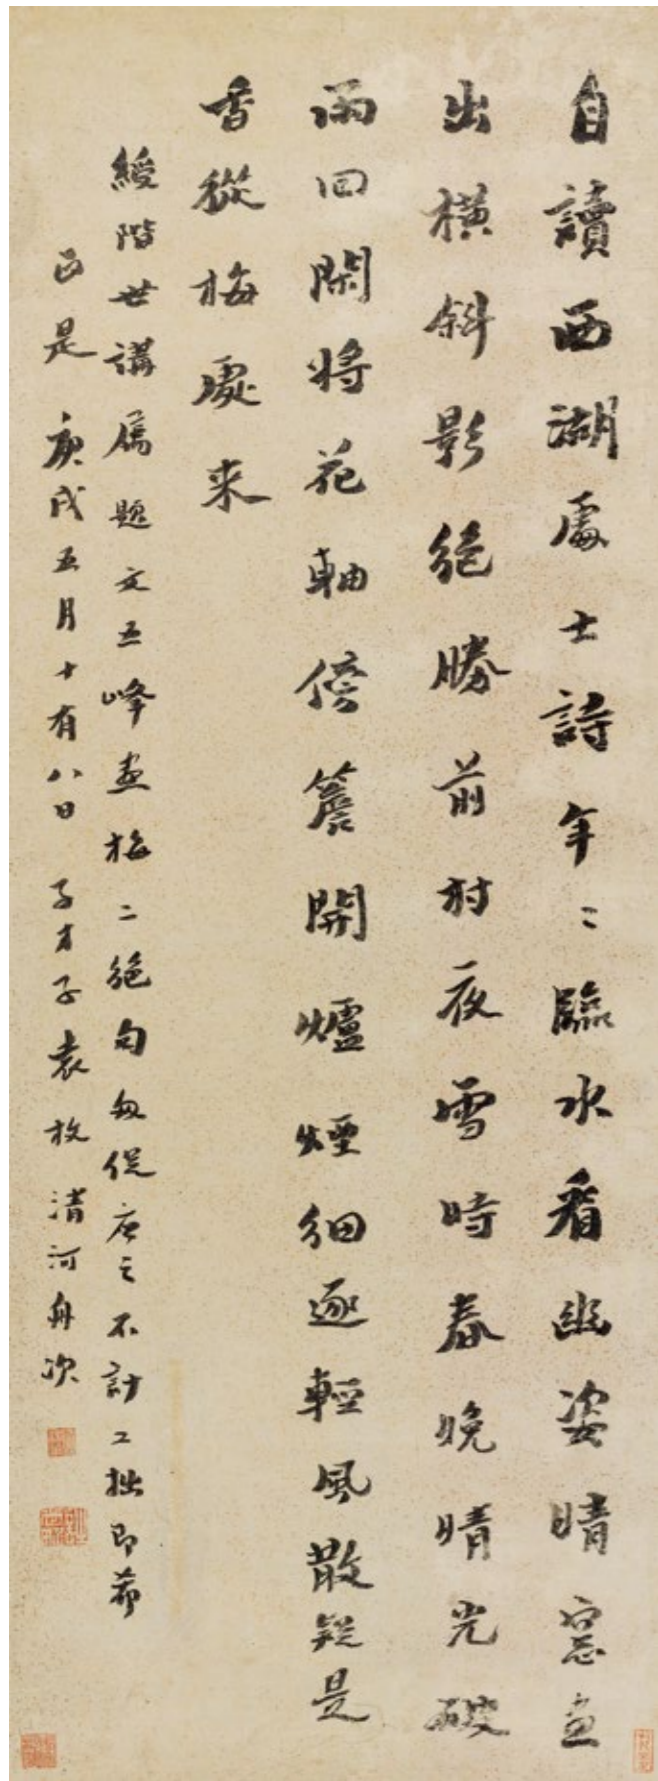 自讀西湖處士詩年〻臨水看幽姿晴窓畫
出橫斜影絕勝前村夜雪時春晚晴光破
雨回閑將花軸傍簷開爐煙細逐輕風散疑是
香從梅處來
綬階世講屬題文五峰畫梅二絕句匆促應之不計工拙即希
正是 庚戌五月十有八日 子才子袁枚清河舟次